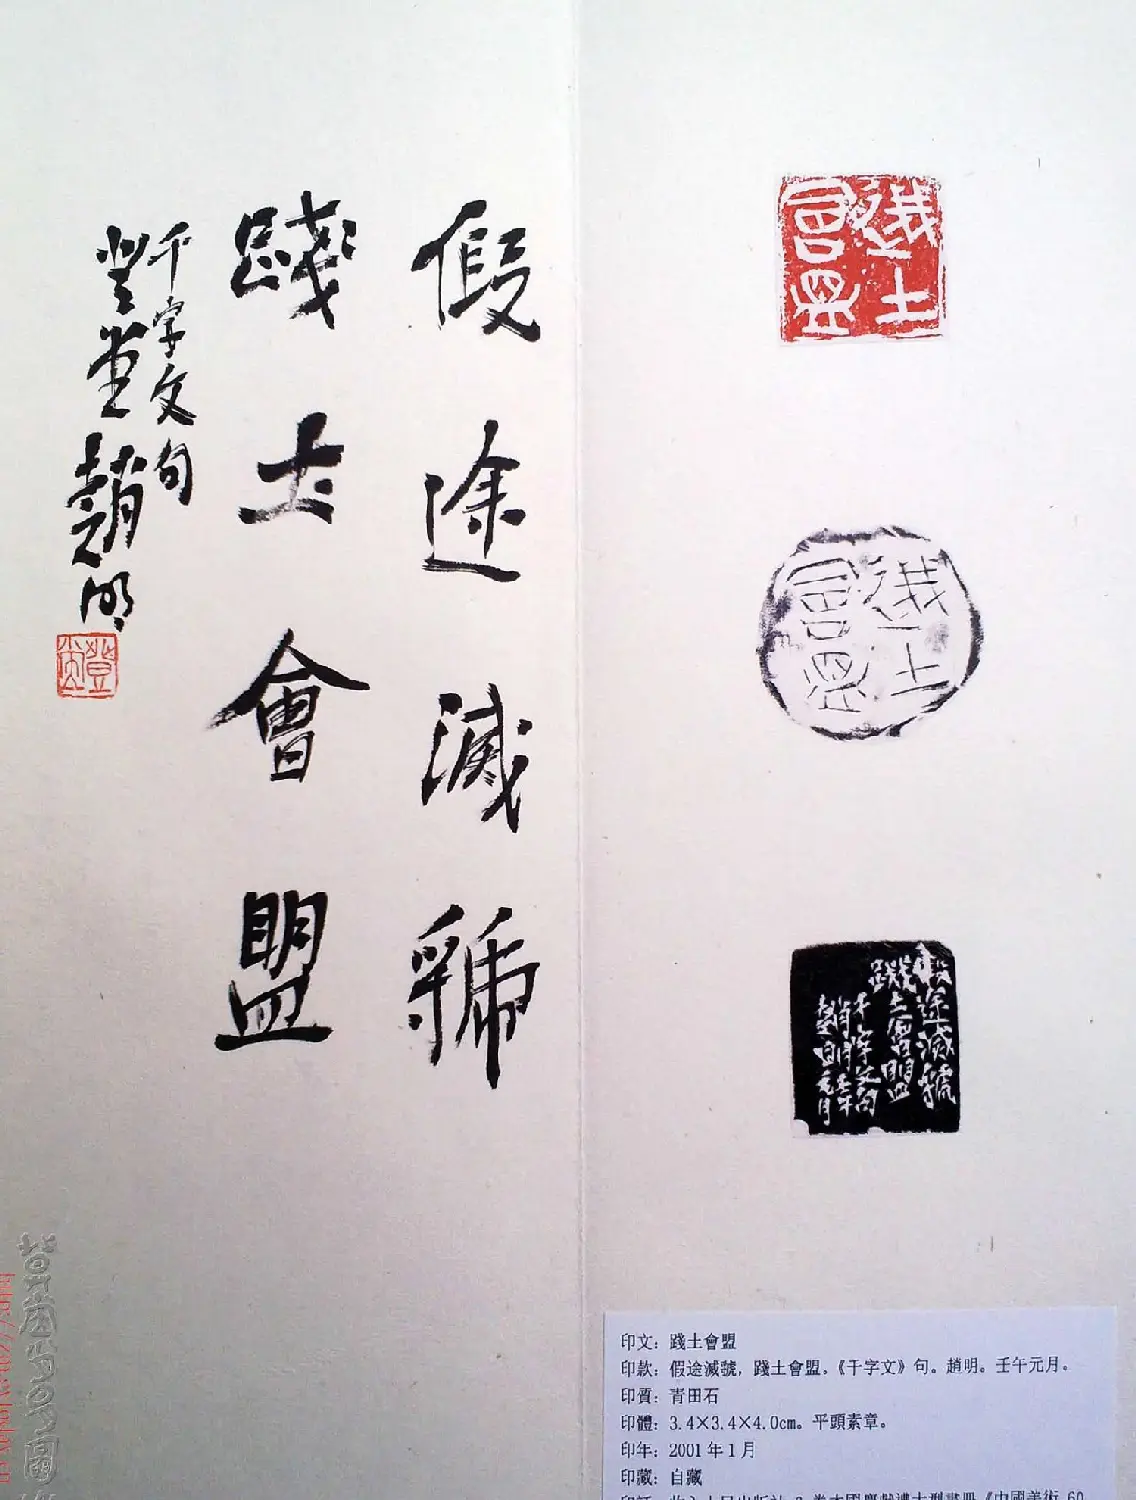 假途滅虢
踐土會盟
千字文句
登堂趙明
登堂
踐土會盟
踐土會盟
假途滅虢
踐土會盟
千字文句
趙明壬午
元月
印文：踐土會盟
印款：假途滅號，踐土會盟。《千字文》句。趙明。壬午元月。
印質：青田石
印體：3.4×3.4×4.0cm。平頭素章。
印年：2001年1月
印藏：自藏